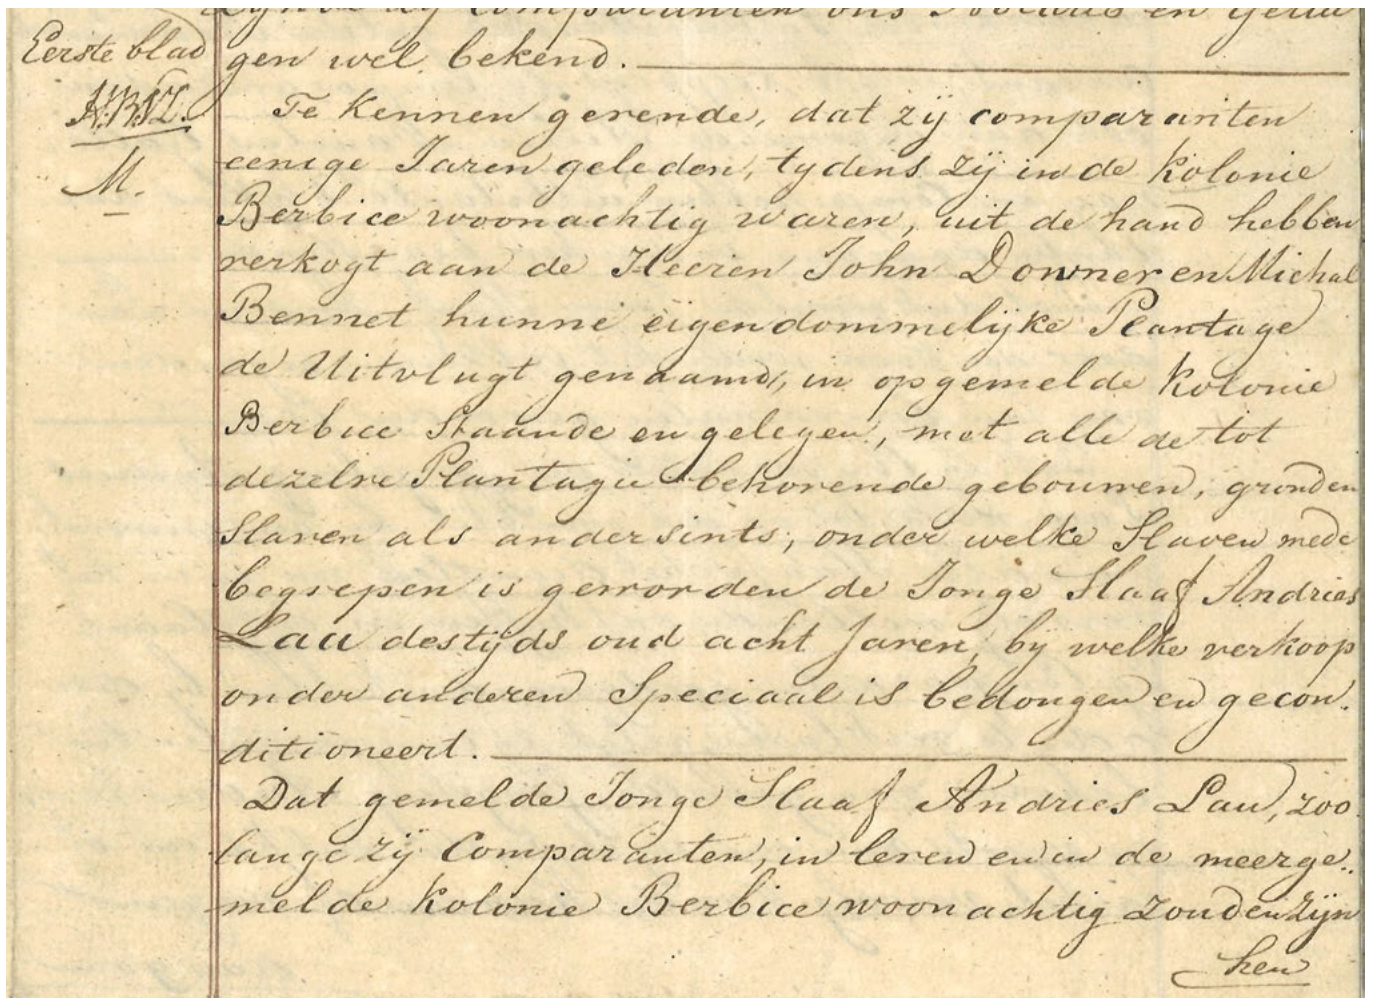 Zynde zy Comparanten ons Notaris en getui
Eerste blad
gen wel bekend.
M.
Te kennen gevende, dat zij comparanten
eenige Jaren geleden, tydens zij in de kolonie
Berbice woonachtig waren, uit de hand hebben
verkogt aan de Heeren John Downer en Michal
Bennet hunne eigendommelijke Plantage
de Uitvlugt genaamd, in opgemelde kolonie
Berbice Staande en gelegen, met alle de tot
dezelve Plantagie behorende gebouwen, gronden
Slaven als andersints, onder welke Slaven mede
begrepen is geworden de Jonge Slaaf Andries
Lau destijds oud acht Jaren, by welke verkoop
onder anderen Speciaal is bedongen en gecon.
ditioneert.
Dat gemelde Jonge Slaaf Andries Lau, zoo
lange zij Comparanten, in leven en in de meerge..
melde kolonie Berbice woonachtig zouden zijn
hen